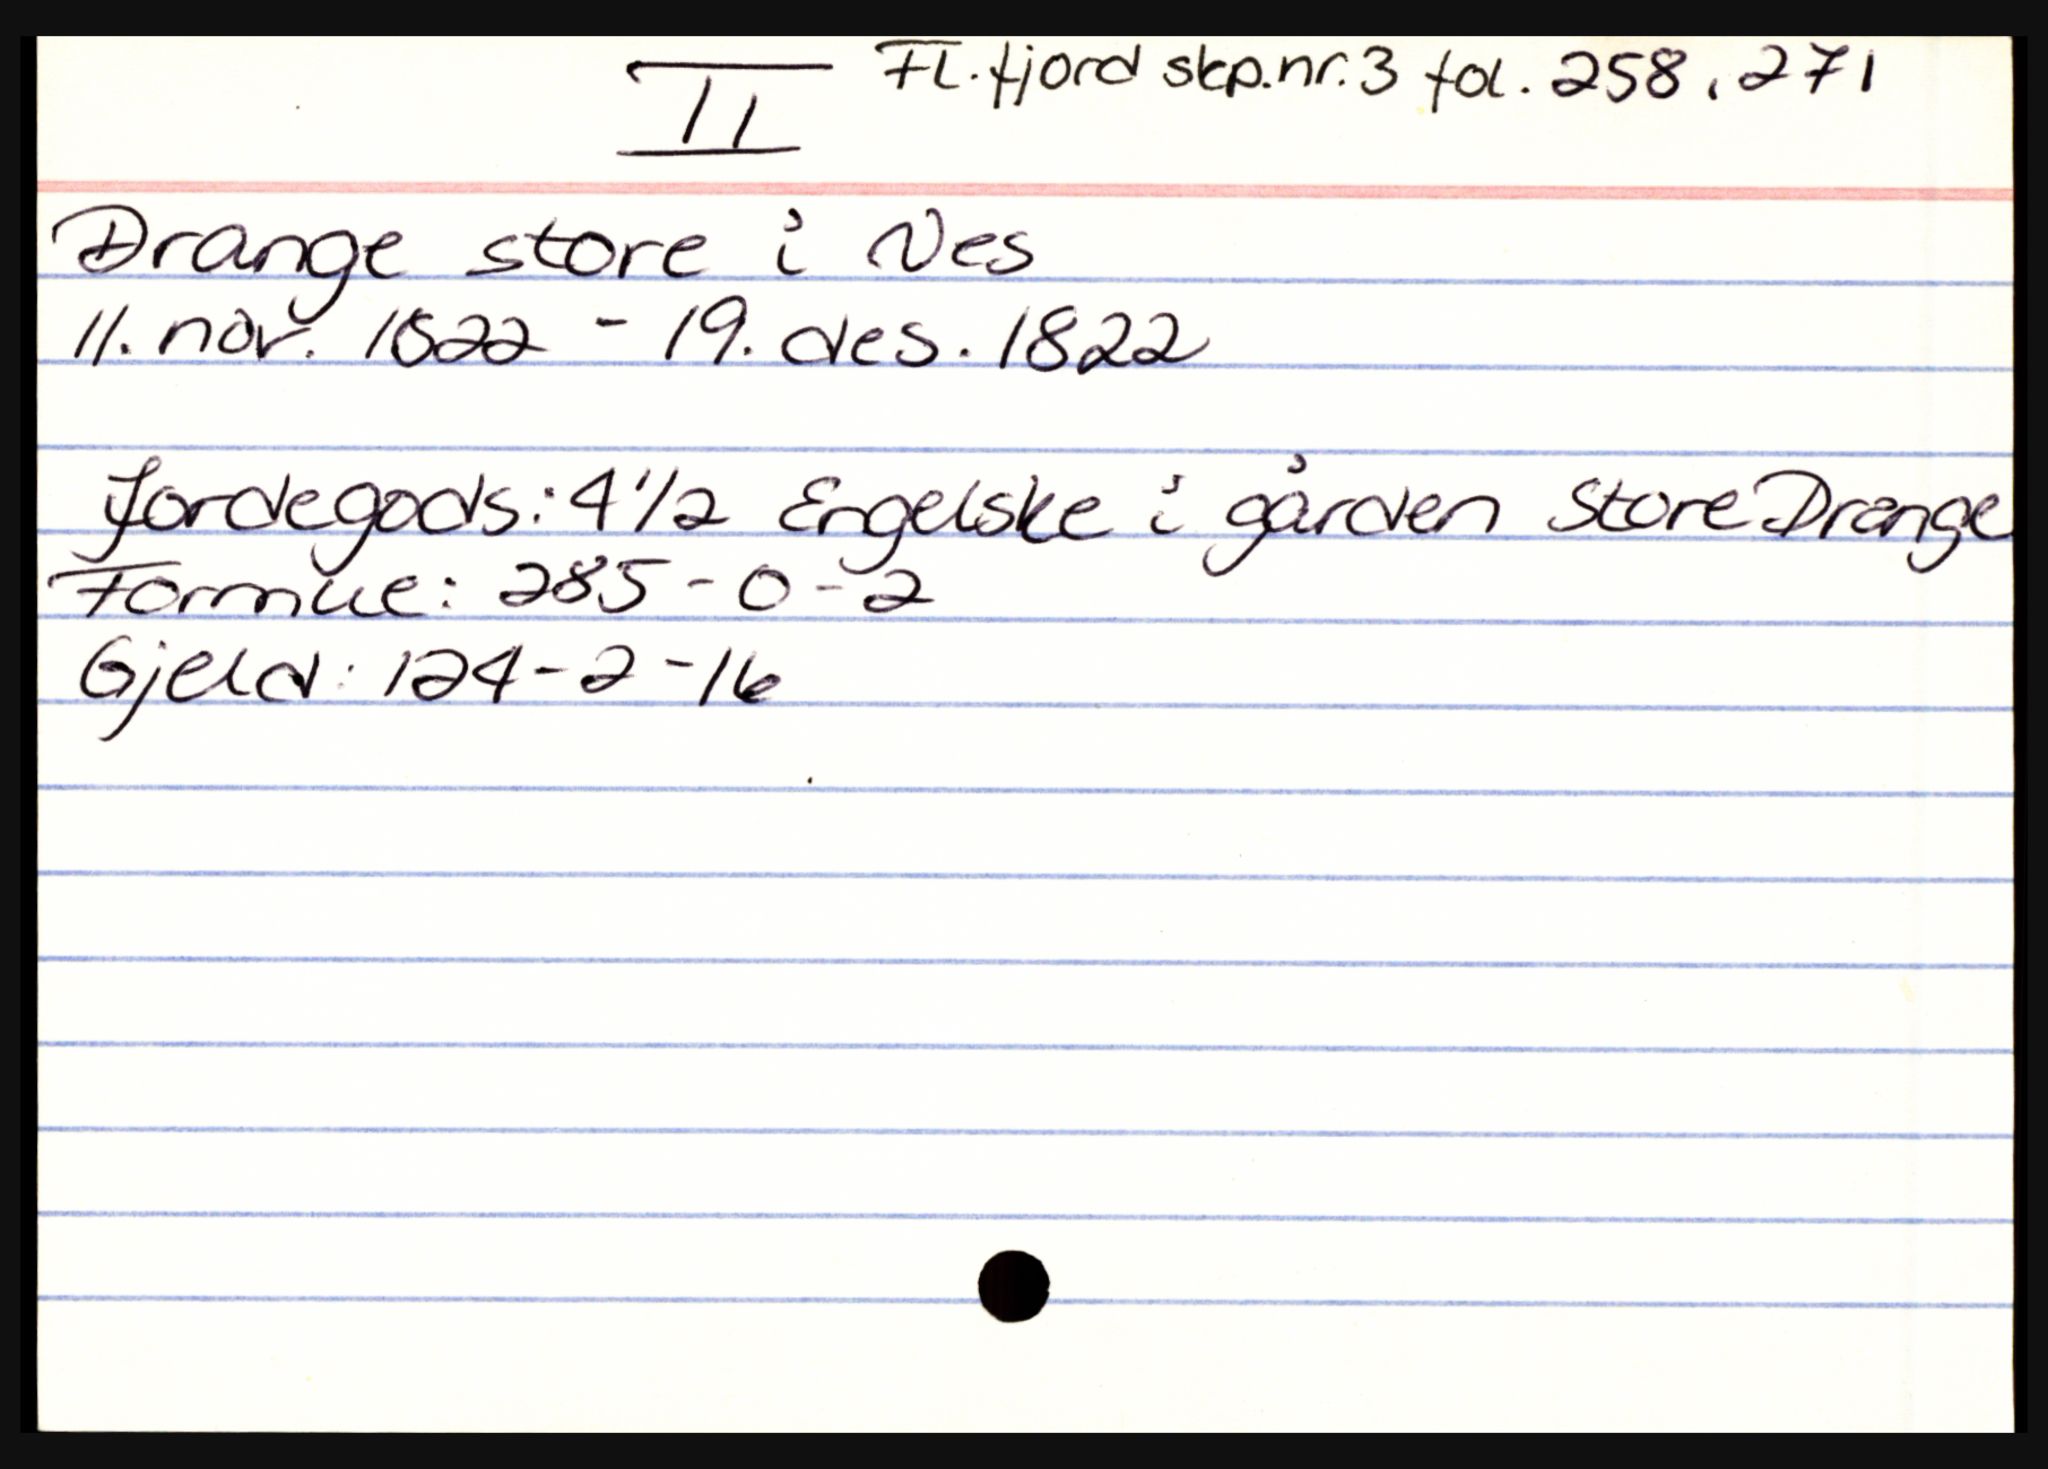 II Fl.fjord skp.nr.3 fol. 258, 271
Drange store i Nes
11. nov. 1822 - 19. des. 1822
Jordegods: 4 1/2 Engelske i gården Store Drange
Formue: 285-0-2
Gjeld: 124-2-16